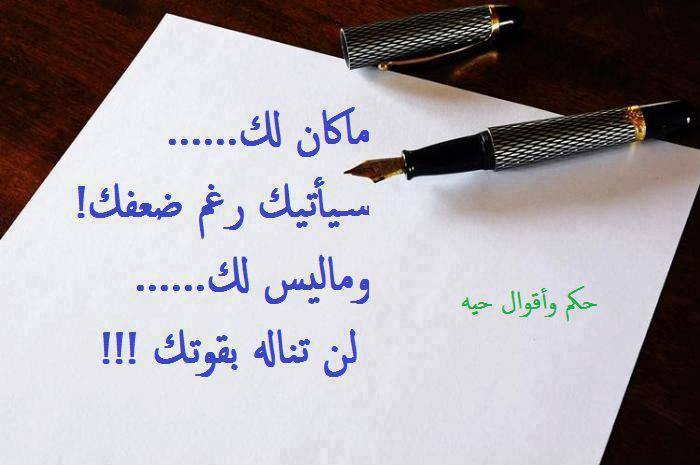 ماكان لك......
سيأتيك رغم ضعفك!
وماليس لك......
لن تناله بقوتك !!!
حكم وأقوال حيه